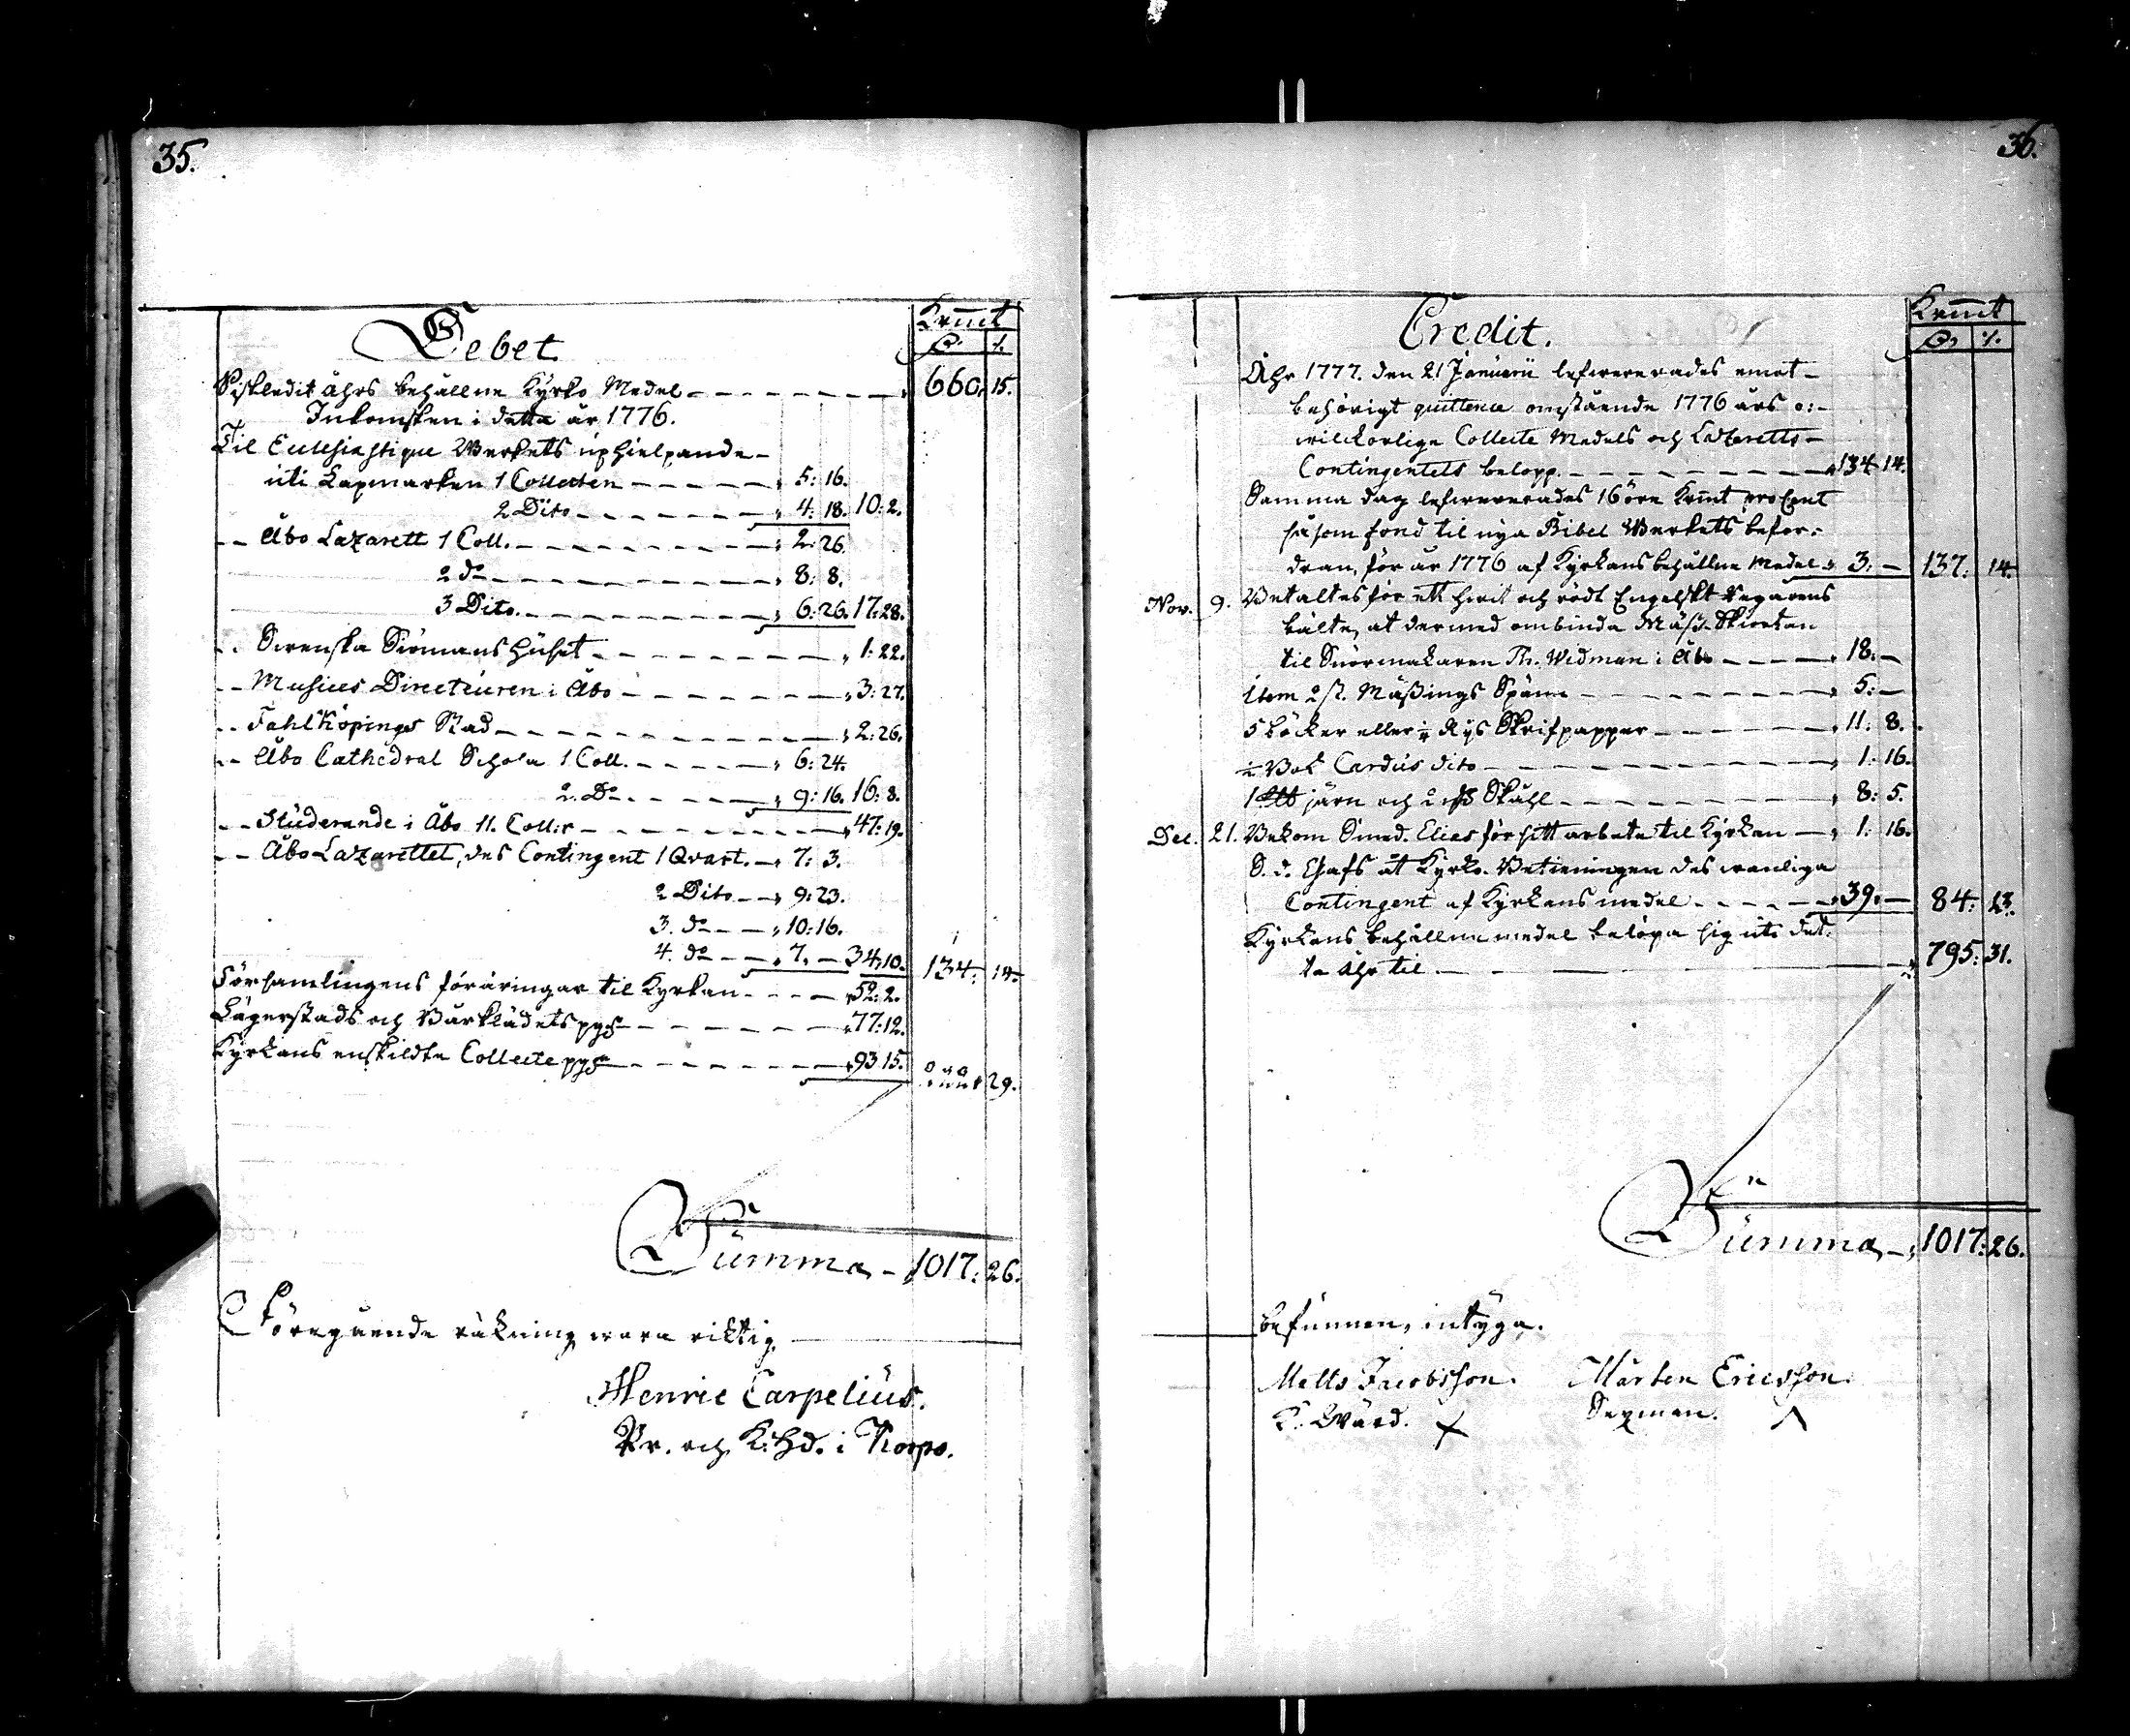 35.
Debet
Kmt
D. :/.
Sistledit åhrs behållne Kyrko Medel 660. 15.
Inkomsten i detta år 1776.
Til Ecclesiastique Werkets uphielpande
uti Lapmarken 1 Collecten 5: 16.
2 Dito 4: 18. 10: 2.
-- Åbo Lazarett 1 Coll. 2: 26.
2 do 8: 8.
3 Dito. 6: 26. 17: 28.
-- Swenska Siömans Huset 1: 22.
-- Musices Directeuren i Åbo 3: 27.
-- Fahlköpings Stad 2: 26.
-- Åbo Cathedral Schola 1 Coll. 6: 24.
2. Do 9: 16. 16: 8.
-- Studerande i Åbo 11. Coll:r 47: 19.
-- Åbo Lazarettet, des Contingent 1 Qvart. 7: 3.
2 Dito 9: 23.
3. do 10: 16.
4. do 7. — 34: 10. 134: 14.
Församlingens föräringar til Kyrkan 52: 2.
Lägerstads och Bårklädets pgr 77: 12.
Kyrkans enskildta Collecte pgr 93 15. 222: 29.
Summa 1017: 26.
Föregående räkning wara riktig
Henric Carpelius.
Pr. och K:Hd. i Korpo.
36.
Credit.
Kmt
D. :/.
Åhr 1777. den 21 Januarii lefwererades emot
behörigt quittence omstående 1776 års o:
wilckorlige Collecte Medels och Lazaretts
Contingentets belopp. 134 14.
Samma dag lefwererades 16 öre Kmt pro Cent
såsom fond til nya Bibel Werkets befor:
dran, för år 1776 af Kyrkans behållne Medel 3: — 137: 14.
Nov. 9. Betaltes för ett hwit och rödt Engelskt
bälte, at dermed ombinda Mäss-Skiortan
til Snörmakaren Th. Widman i Åbo 18: —
item 2 st. Mässings Spänn 5: —
5 böcker eller ¼ Rys Skrifpapper 11: 8.
½ Bok Cardus dito 1: 16.
1 järn och 2 Ståhl 8: 5.
Dec. 21. Bekom Smed. Elias för sitt arbete til Kyrkan 1: 16.
S. d. Gafs åt Kyrko-Betieningen des wanliga
Contingent af Kyrkans medel 39. — 84: 13.
Kyrkans behållne medel belöpa sig uti det:
ta åhr til 795: 31.
Summa 1017: 26.
befunnen, intyga.
Matts Jacobsson. Mårten Ericsson.
K. Wärd. Sexman.